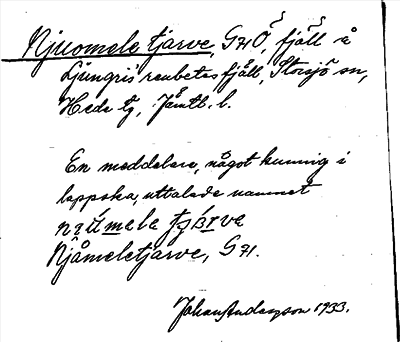 Njuomeletjarve, G 71 Ö, fjäll å
Ljungris renbetesfjäll, Storsjö sn,
Hede tg, Jämtl. l.
En meddelare, något kunnig i
lappska, uttalade namnet
Njåmeletjarve, G 71.
Johan Anderzson 1933.